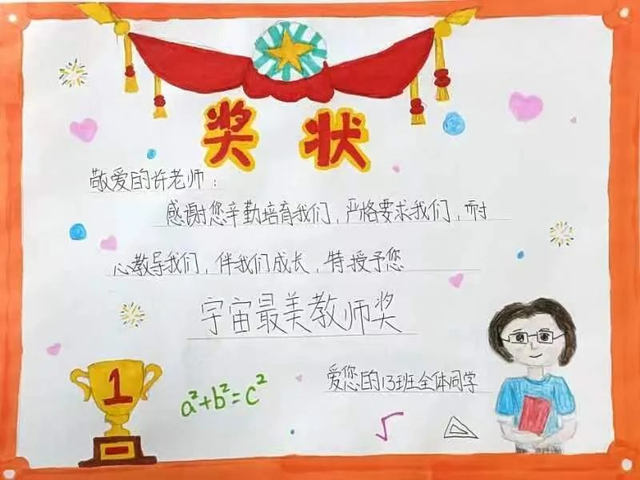 奖状
敬爱的许老师：
感谢您辛勤培育我们，严格要求我们，耐
心教导我们，伴我们成长，特授予您
宇宙最美教师奖
爱您的13班全体同学
1
a²+b²=c²
√